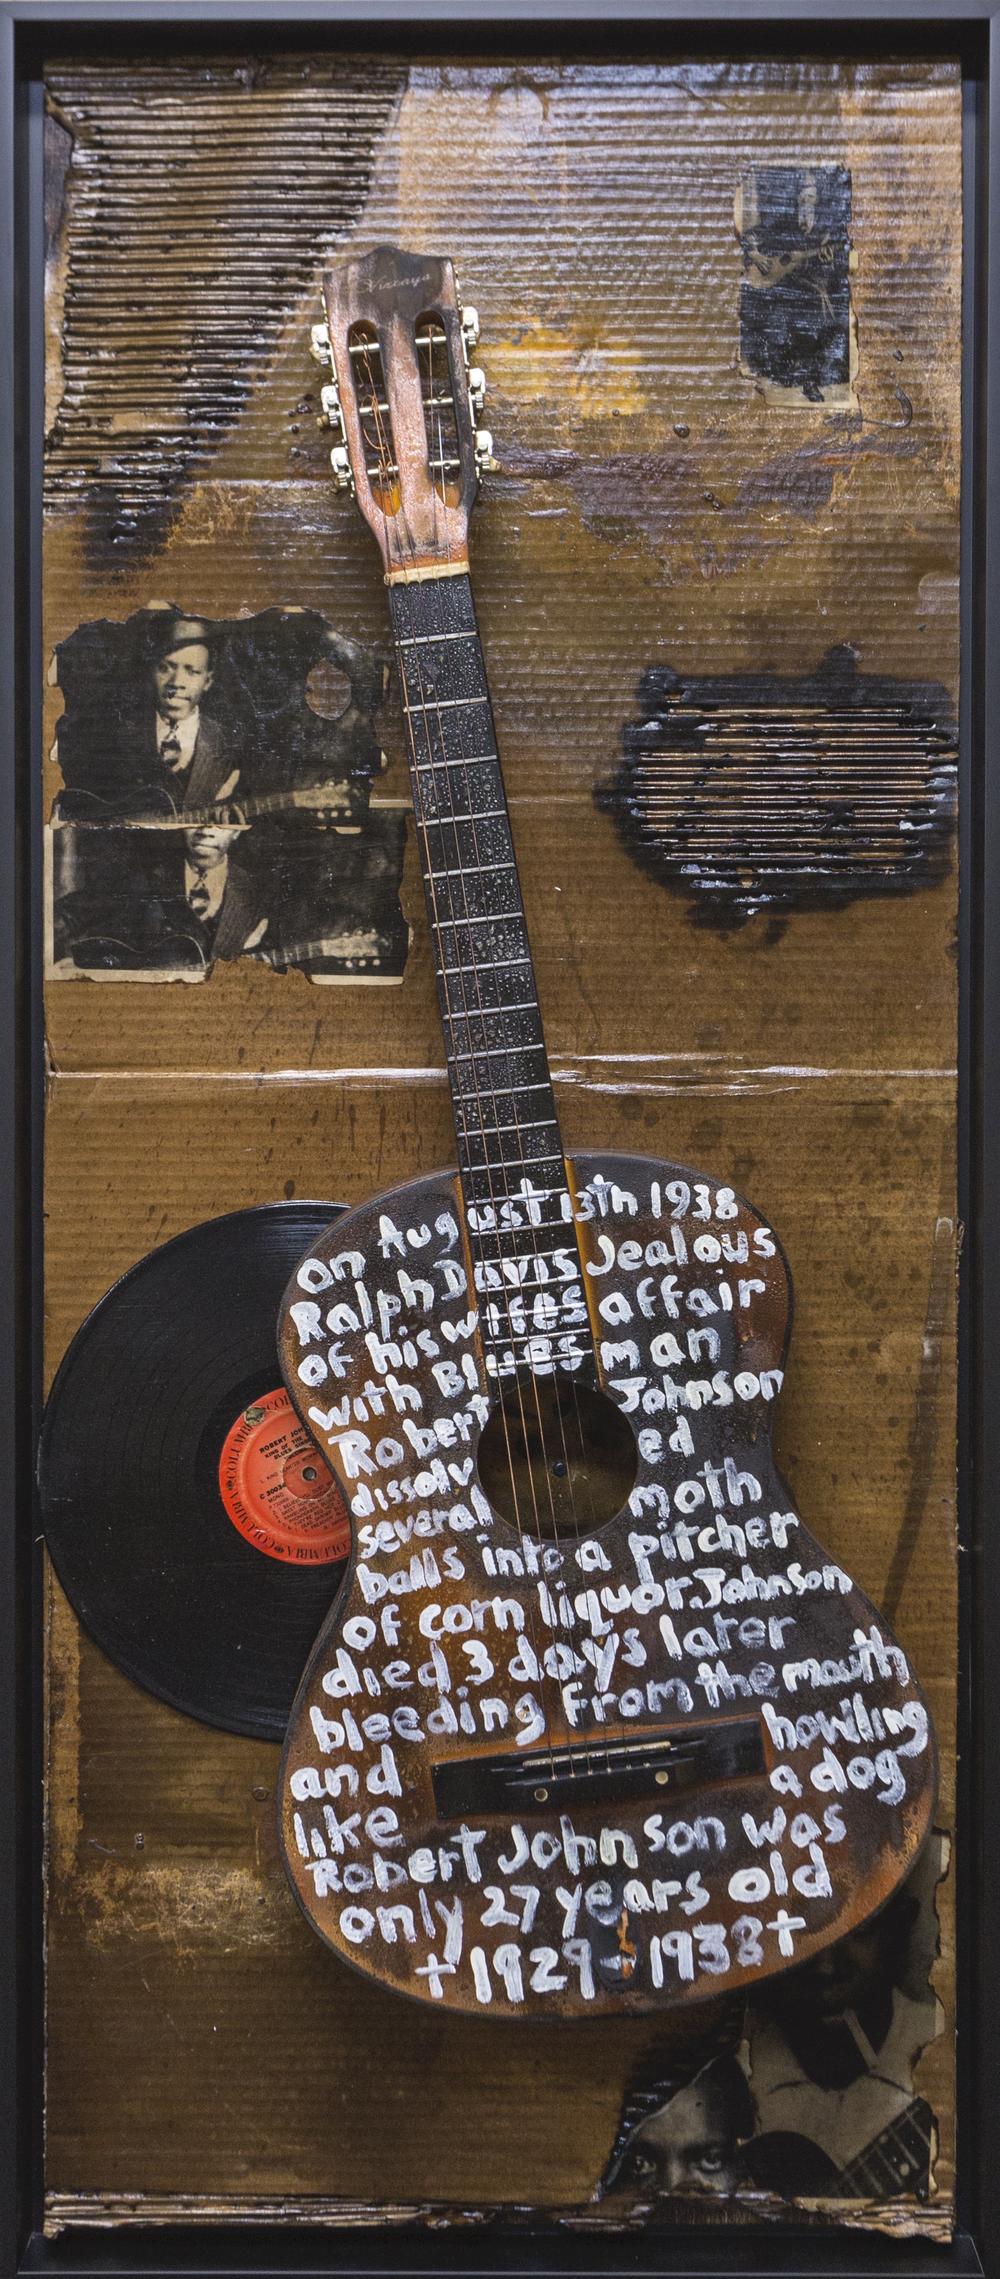 Vizcaya
On August 13th 1938
Ralph Davis Jealous
of his wifes affair
with Blues man
Robert Johnson
dissolv ed
several moth
balls into a pitcher
of corn liquor. Johnson
died 3 days later
bleeding from the mouth
and howling
like a dog
Robert Johnson was
only 27 years old
† 1929 - 1938 †
COLUMBIA
ROBERT JOH
KING OF THE
BLUES SIN
MONO